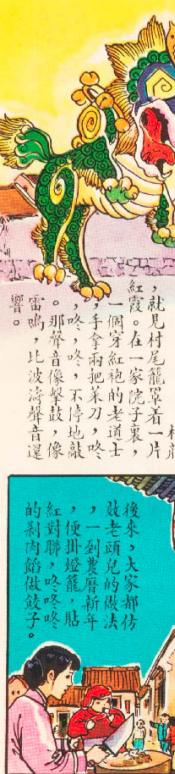 ,就見村尾籠罩着一片
紅霞。在一家院子裏,
一個穿紅袍的老道士
,手拿兩把菜刀,咚
,咚,咚,不停地敲
。那聲音像擊鼓,像
雷鳴,比波濤聲音還
響。
後來,大家都仿
效老頭兒的做法
,一到農曆新年
,便掛燈籠,貼
紅對聯,咚咚咚
的剁肉餡做餃子。